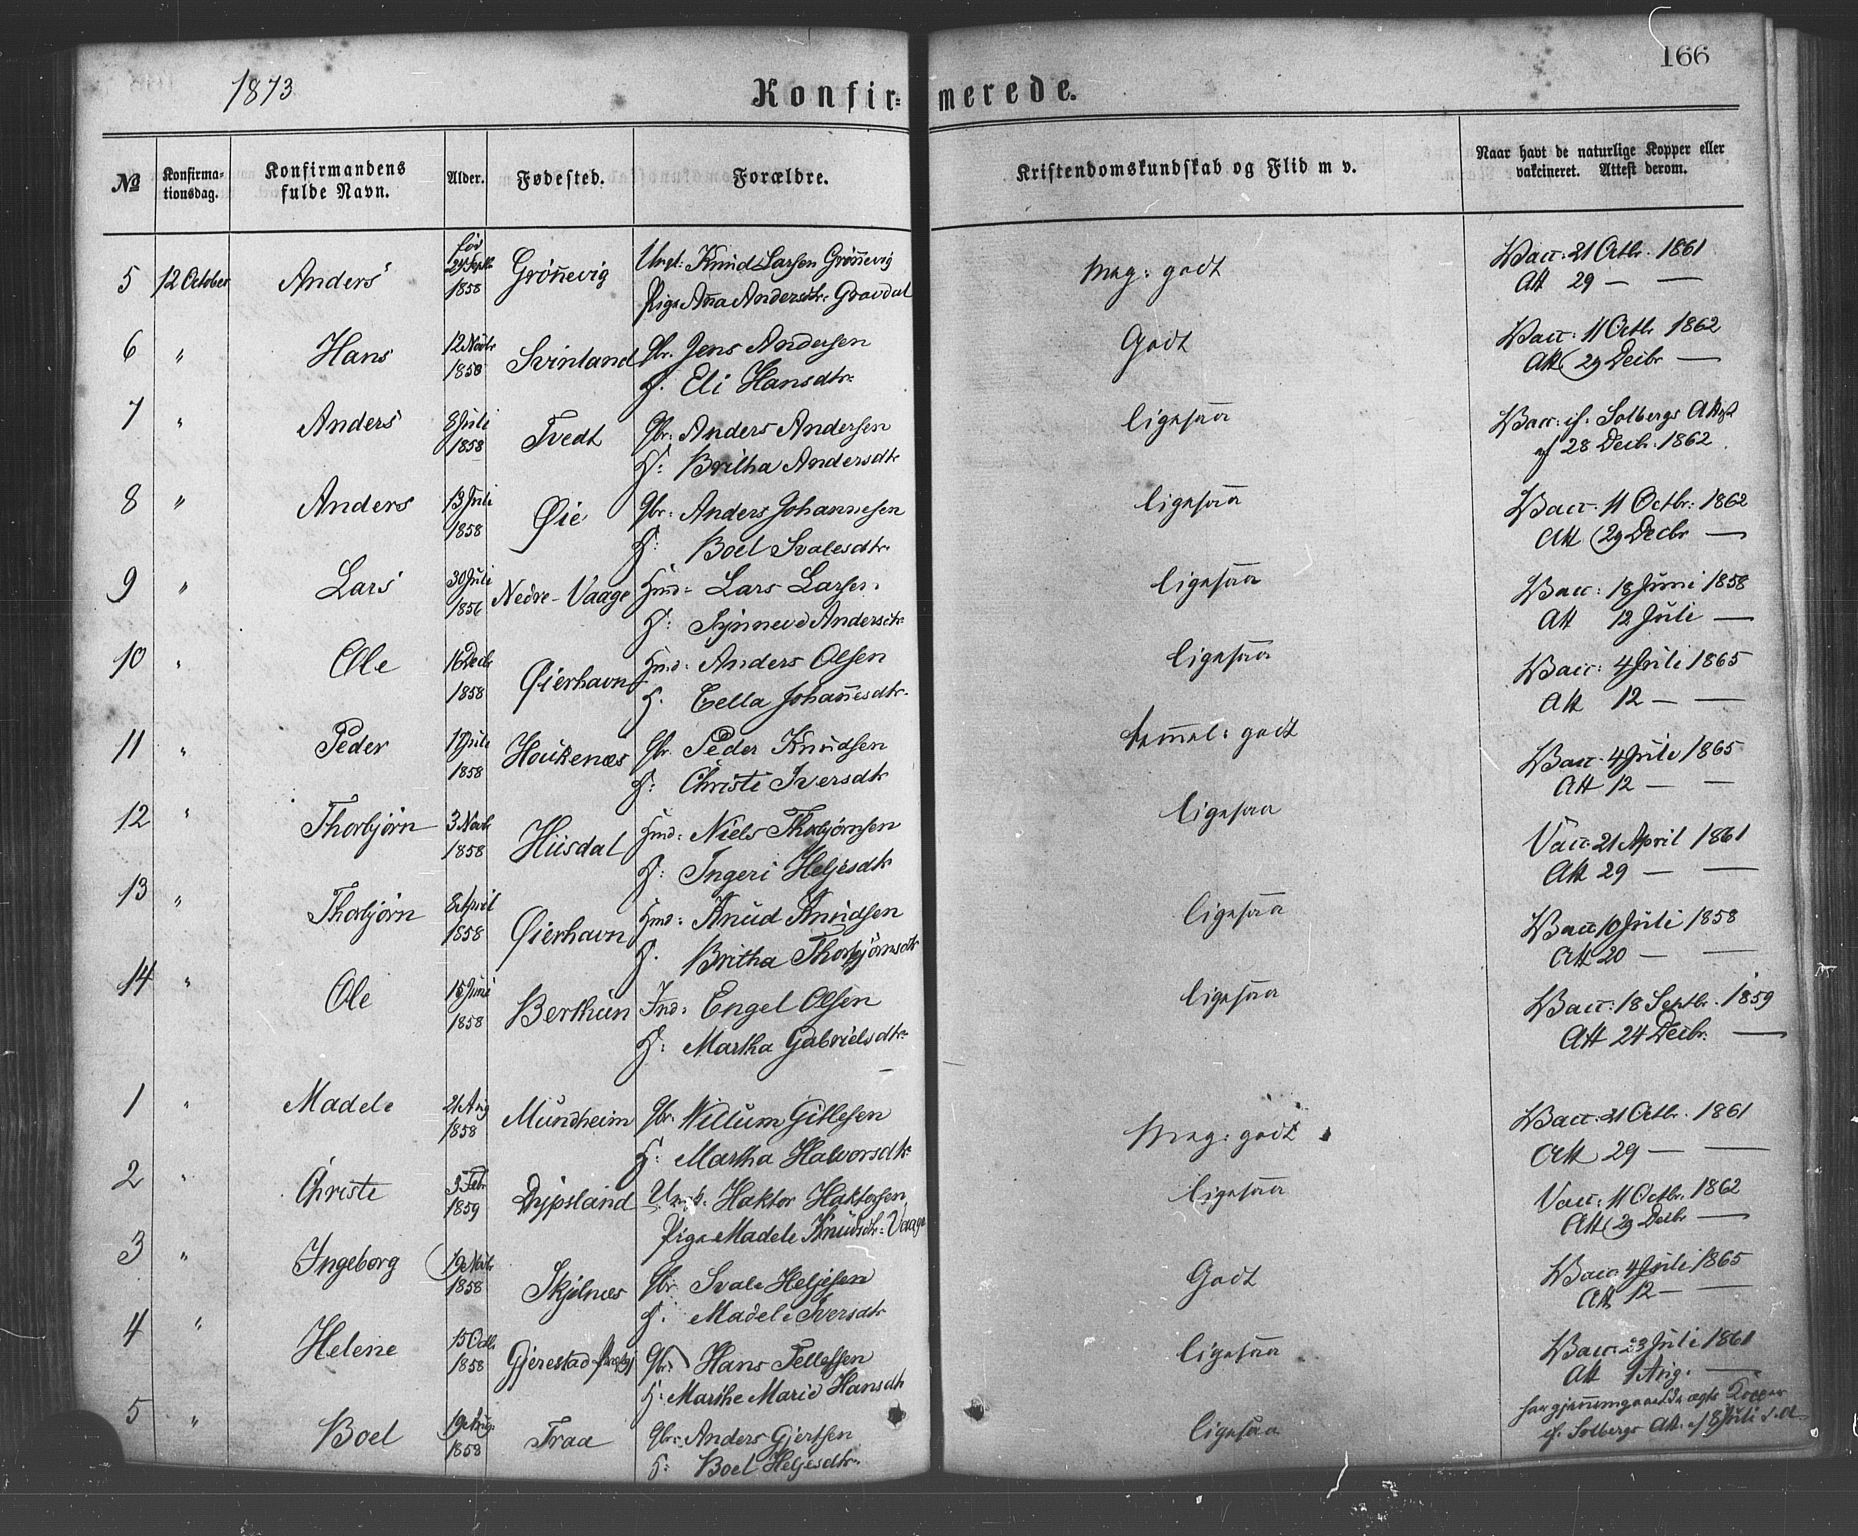 166
1873
Konfir- merede.
№ Konfirma-tionsdag. Konfirmandens fulde Navn. Alder. Fødested. Forældre. Kristendomskundskab og Flid m v. Naar havt de naturlige Kopper eller vakcineret. Attest derom.
5 12 October Anders 24 Septb 1858 Grönevig Ungk: Knud Larsen Grönevig Meg: godt Vacc: 21 Octbr. 1861
Pige Anna Andersdtr. Gravdal Att 29 — —
6 " Hans 12 Novbr 1858 Svinland Gbr. Jens Andersen Godt Vacc: 11 Octbr 1862
H. Eli Hansdtr. Att 29 Decbr —
7 " Anders 8 Juli 1858 Tvedt Gbr: Anders Andersen ligesaa Vacc: ef. Solbergs Attest
H: Britha Andersdtr af 28 Decbr. 1862.
8 " Anders 13 Juli 1858 Øie Gbr: Anders Johannesen ligesaa Vacc. 11 Octbr: 1862
H: Boel Svalesdtr. Att 29 Decbr —
9 " Lars 30 Juli 1856 Nedre-Vaage Hmd: Lars Larsen. ligesaa Vacc: 18 Juni 1858
H: Synneve Andersdtr Att 12 Juli —
10 " Ole 16 Decbr 1858 Øierhavn Hmd: Anders Olsen ligesaa Vacc: 4 Juli 1865
H. Cella Johanesdtr. Att 12 — —
11 " Peder 17 Juli 1858 Houkenæs Gbr. Peder Knudsen temmel: godt Vacc. 4 Juli 1865
H: Christi Iversdtr Att 12 — —
12 " Thorbjørn 3 Novbr 1858 Husdal Hmd: Niels Thorbjørnsen ligesaa Vacc: 21 April 1861
H: Ingeri Heljesdtr Att 29 — —
13 " Thorbjørn 8 April 1858 Øierhavn Hmd: Knud Knudsen ligesaa Vacc 10 Juli 1858
H. Britha Thorbjørnsdtr Att 20 — —
14 " Ole 15 Juni 1858 Berthun Ind: Engel Olsen ligesaa Vacc: 18 Septbr. 1859
H: Martha Gabrielsdtr. Att 24 Decbr. —
1 " Madele 21 Aug 1858 Mundheim Gbr. Willum Gitlesen Meg: godt Vacc. 21 Octbr. 1861
H: Martha Halvorsdtr Att 29 — —
2 " Christi 5 Febr 1859 Dypsland Ungk. Haktor Haktorsen ligesaa Vacc: 11 Octbr. 1862
Pige Madele Knudsdtr. Vaage Att 29 Decbr —
3 " Ingeborg 19 Novbr 1858 Skjelnæs Gbr. Svale Heljesen Godt Vacc 4 Juli 1865
H. Madele Iversdtr Att 12 — —
4 " Helene 15 Octbr 1858 Gjerestad Gbr. Hans Tellefsen ligesaa Vacc: 23 Juli 1861
H: Marthe Marie Hansdtr Att 1 Aug. —
5 " Boel 19 Aug. 1858 Traa Gbr: Anders Gjertsen ligesaa har gjennemgaaet de ægte Kopper
H: Boel Heljesdtr. ef. Solbergs Att. af 8 Juli